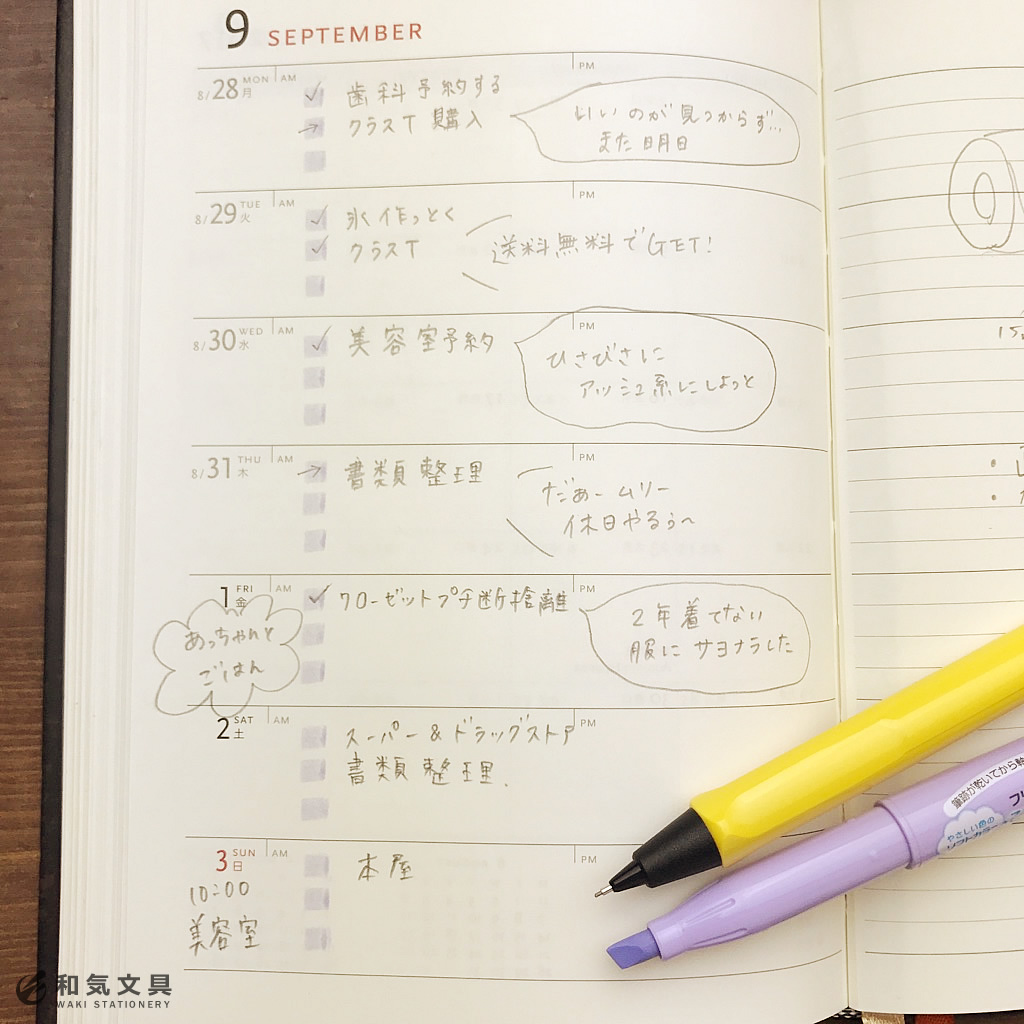 9 SEPTEMBER
8/28 MON 月 AM PM
✓ 歯科予約する
→ クラスT 購入
いいのが見つからず…
また明日
8/29 TUE 火 AM PM
✓ 氷作っとく
✓ クラスT
送料無料でGET!
8/30 WED 水 AM PM
✓ 美容室予約
ひさびさに
アッシュ系にしよっと
8/31 THU 木 AM PM
→ 書類整理
だぁームリー
休日やるぅ〜
1 FRI 金 AM PM
✓ クローゼットプチ断捨離
2年着てない
服にサヨナラした
あっちゃんと
ごはん
2 SAT 土 AM PM
スーパー&ドラッグストア
書類整理.
3 SUN 日 AM PM
本屋
10:00
美容室
筆跡が乾いてから
やさしい色の
ソフトカラー
和気文具
WAKI STATIONERY